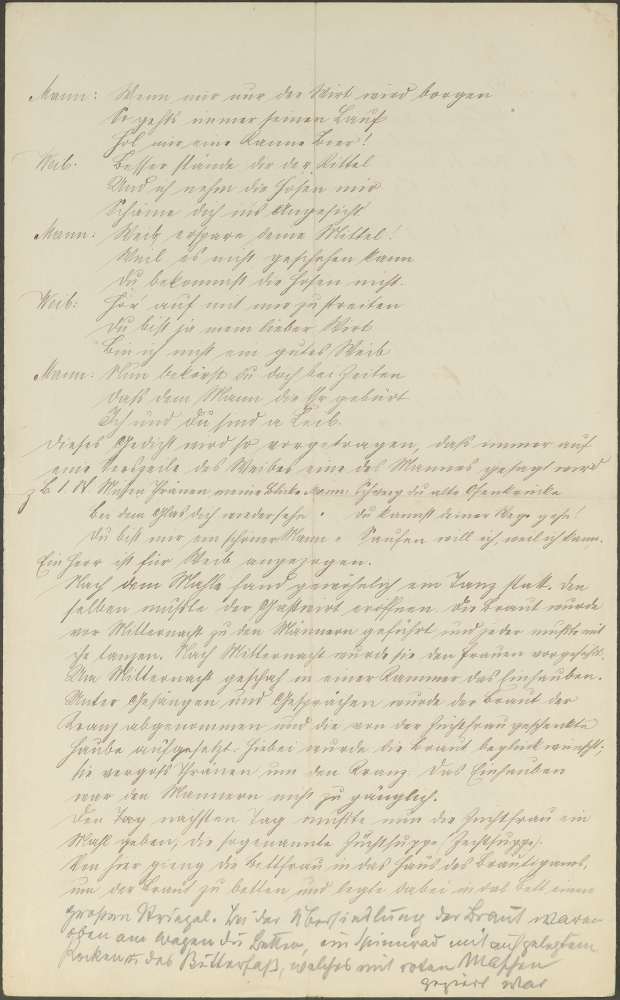 Mann: Wenn mir nur der Wirt wird borgen
So gehts immer seinen Lauf
Hol mir eine Kanne Bier!
Weib. Besser stände dir der Kittel
Und ich nehm die Hosen mir
Schäme dich ins Angesicht
Mann. Weib, erspare deine Mittel!
Weil es nicht geschehen kann
Du bekommst die Hosen nicht.
Weib: Hör auf mit mir zu streiten
Du bist ja mein lieber
Bin ich nicht ein gutes Weib
Mann: Nun bekörst du doch bei Zeiten
Daß dem Mann die Er gebürt
Ich und du sind a Leib.
Dieses Gedicht wird so vorgetragen, daß immer auf
eine Verszeile des Weibes eine des Mannes gesagt wird
z B 1. W Müssen Thränen meine Blicke Mann: Schweig du alte Ofenkrücke
Bei dem Glas dich wiedersehn " du kannst deiner Wege gehn!
Du bist mir ein schöner Mann " Saufen will ich, weil ich kann.
Ein Herr ist für Weib angezogen.
Nach dem Mahle fand gewöhnlich ein Tanz statt. Den
selben mußte der Gastwirt eröffnen. Die Braut wurde
vor Mitternacht zu den Männern geführt und jeder mußte mit
ihr tanzen. Nach Mitternacht wurde sie den Frauen vorgeführt.
Um Mitternacht geschah in einer Kammer das Einhauben.
Unter Gesängen und Gesprächen wurde der Braut der
Kranz abgenommen und die von der Zuchtfrau geschenkte
Haube aufgesetzt. Hiebei wurde die Braut beglückwünscht;
sie vergoß Thränen um den Kranz. Das Einhauben
war den Männern nicht zugänglich.
Den Tag nächsten Tag mußte nun die Zuchtfrau ein
Mahl geben, die sogenannte Züchtsuppe (Zechsuppe).
Von hier gieng die Bettfrau in das Haus des Bräutigams,
um der Braut zu betten und legte dabei in das Bett einen
großen Striezel. Bei der Übersiedlung der Braut waren
oben am Wagen die Betten, ein Spinnrad mit aufgelegtem
Rocken u. das Butterfaß, welches mit roten Maschen
geziert war